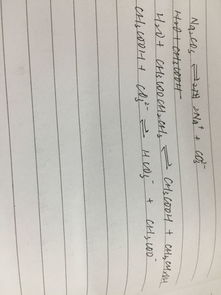 Na₂CO₃ ⇌ 2Na⁺ + CO₃²⁻
H₂O + CH₃COOH
H₂O + CH₃COOCH₂CH₃ ⇌ CH₃COOH + CH₃CH₂OH
CH₃COOH + CO₃²⁻ ⇌ HCO₃⁻ + CH₃COO⁻